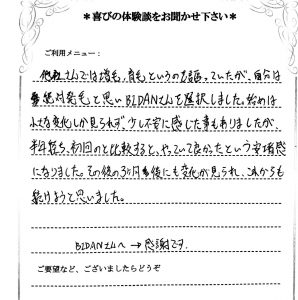 ＊喜びの体験談をお聞かせ下さい＊
ご利用メニュー：
他社さんでは増毛、育毛というのも謳っていたが、自分は
絶対発毛と思いBIDANさんを選択しました。始めは
小さな変化しか見られず、少し不安に感じた事もありましたが、
半年経ち、初回のと比較すると、やっていて良かったという安堵感
になりました。その後の3ヶ月後にも変化が見られ、これからも
続けようと思いました。
BIDANさんへ → 感謝です。
ご要望など、ございましたらどうぞ